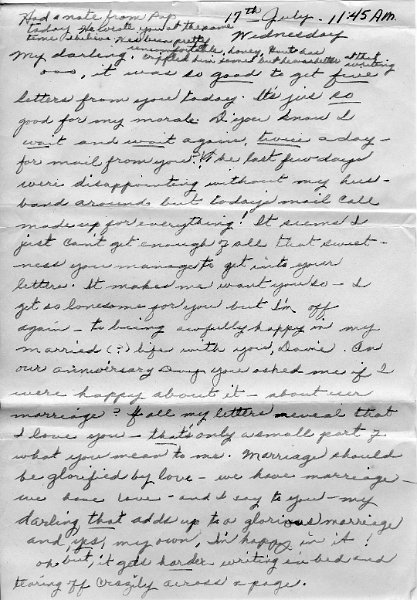 Had a note from Pop
today. He wrote you at the same
time. I believe. Has been pretty
uncomfortable, honey. Heat has
crippled him some but he was better at that
writing
17th July. 11:45 A.M.
Wednesday
My darling,
ooo, it was so good to get five
letters from you today. It's jus so
good for my morale. D'you know I
wait and wait again, twice a day -
for mail from you? The last few days
were disappointing without my hus-
band around but today's mail call
made up for everything! It seems I
just can't get enough of all that sweet-
ness you manage to get into your
letters. It makes me want you so - I
get so lonesome for you but I'm off
again - to being awfully happy in my
married (?) life with you, Dave. On
our anniversary Day you asked me if I
were happy about it - about our
marriage? If all my letters reveal that
I love you - that's only a small part of
what you mean to me. Marriage should
be glorified by love - we have marriage -
we have love - and I say to you - my
darling that adds up to a glorious marriage
and, yes, my own, I'm happy in it!
oh but, it gets harder writing in bed and
tearing off crazily across a page.